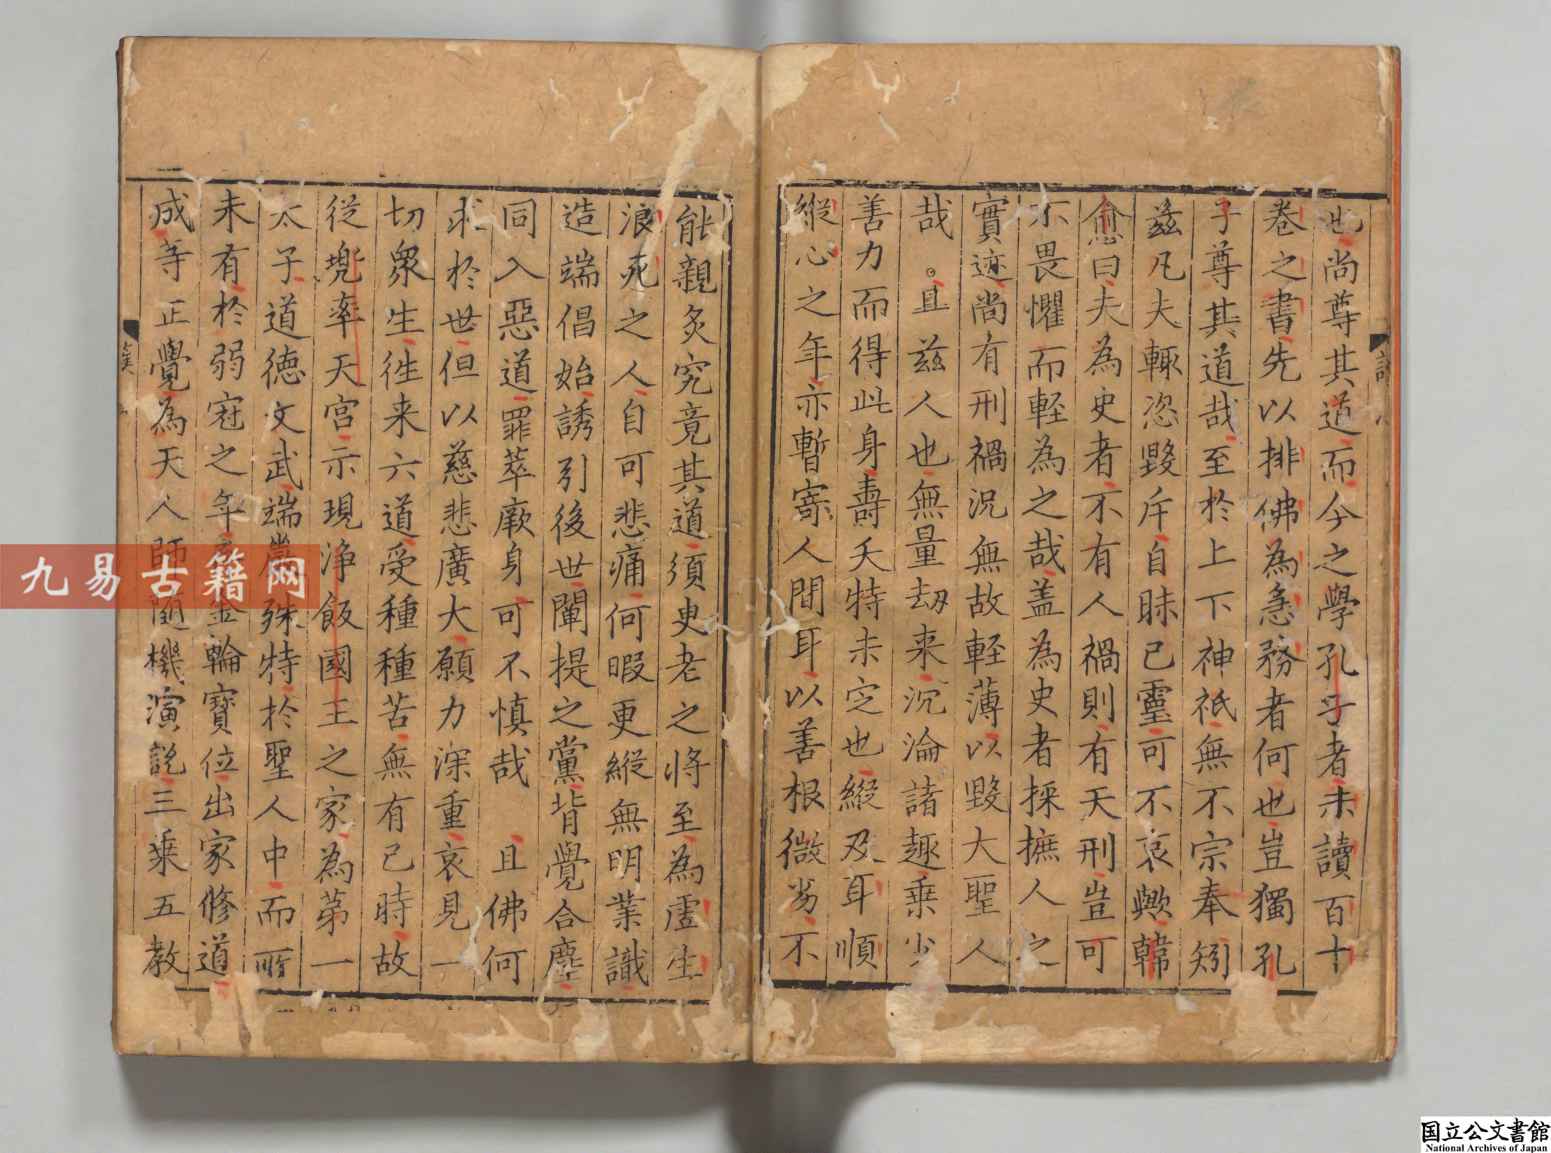 也尚尊其道而今之學孔子者未讀百十
卷之書先以排佛為急務者何也豈獨孔
子尊其道哉至於上下神祇無不宗奉矧
茲凡夫輒恣毀斥自昧己靈可不哀歟韓
愈曰夫為史者不有人禍則有天刑豈可
不畏懼而軽為之哉盖為史者採摭人之
實迹尚有刑禍況無故輕薄以毀大聖人
哉且茲人也無量劫来沉淪諸趣乗少
善力而得此身壽夭特未定也縱及耳順
縱心之年亦暫寄人間耳以善根微劣不
能親炙究竟其道須臾老之將至為虛生
浪死之人自可悲痛何暇更縱無明業識
造端倡始誘引後世闡提之黨背覺合塵
同入惡道罪萃厥身可不慎哉且佛何
求於世但以慈悲廣大願力深重哀見一
切衆生徃来六道受種種苦無有已時故
從兜率天宮示現浄飯國王之家為第一
太子道德文武端嚴殊特於聖人中而所
未有於弱冠之年金輪寶位出家修道
成等正覺為天人師随機演說三乗五教
九易古籍网
国立公文書館
National Archives of Japan